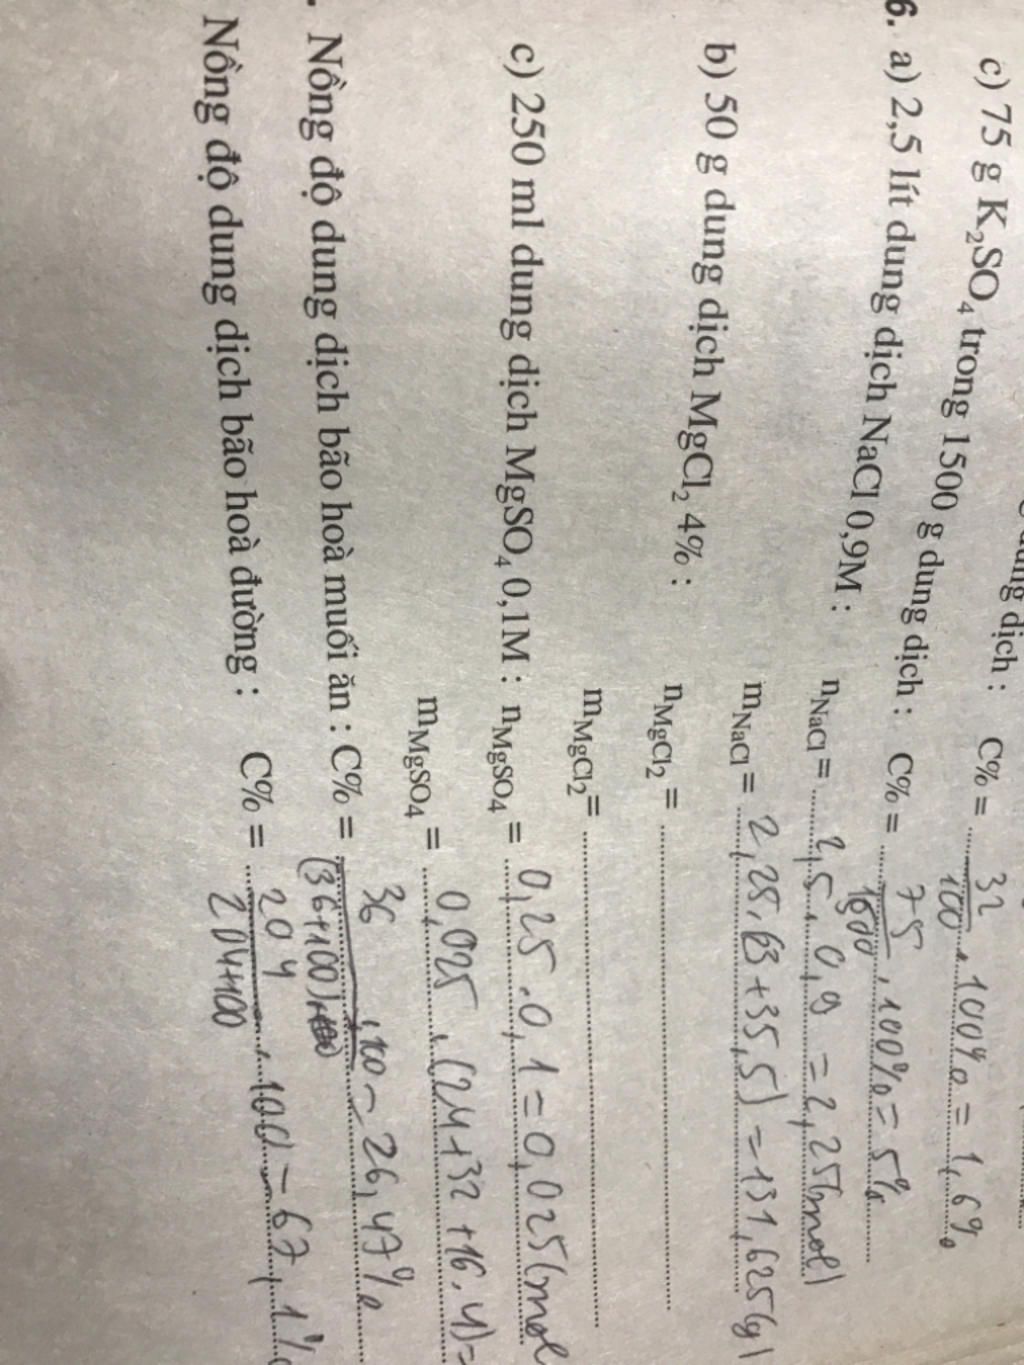 dung dịch : C% = 32/100 . 100% = 1,6%
c) 75 g K₂SO₄ trong 1500 g dung dịch : C% = 75/1500 . 100% = 5%
6. a) 2,5 lít dung dịch NaCl 0,9M : nNaCl = 2,5 . 0,9 = 2,25 (mol)
mNaCl = 2,25 . 23 + 35,5) = 131,625 (g)
b) 50 g dung dịch MgCl₂ 4% : nMgCl2 =
mMgCl2 =
c) 250 ml dung dịch MgSO₄ 0,1M : nMgSO4 = 0,25 . 0,1 = 0,025 (mol
mMgSO4 = 0,025 . (24 + 32 + 16 . 4) =
. Nồng độ dung dịch bão hoà muối ăn : C% = 36/(36+100) . 100 = 26,47%
Nồng độ dung dịch bão hoà đường : C% = 204/204+100 . 100 = 67,1%